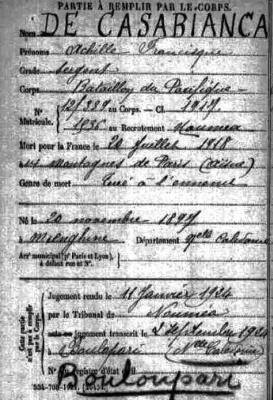 PARTIE À REMPLIR PAR LE CORPS.
Nom DE CASABIANCA
Prénoms Achille Francisque
Grade Sergent
Corps Bataillon du Pacifique
N° 12/389 au Corps. — Cl. 1917
Matricule. 1936 au Recrutement Nouméa
Mort pour la France le 20 juillet 1918
Montagnes de Paris (Aisne)
Genre de mort Tué à l'ennemi
Né le 20 novembre 1897
à Département Nelle Calédonie
Arr' municipal (p' Paris et Lyon),
à défaut rue et N°.
Cette partie
n'est pas à remplir
par le Corps.
Jugement rendu le 11 Janvier 1924
par le Tribunal de Nouméa
acte ou jugement transcrit le 2 septembre 1924
à Bouloupari (Nlle Calédonie)
N° du registre d'état civil
Bouloupari